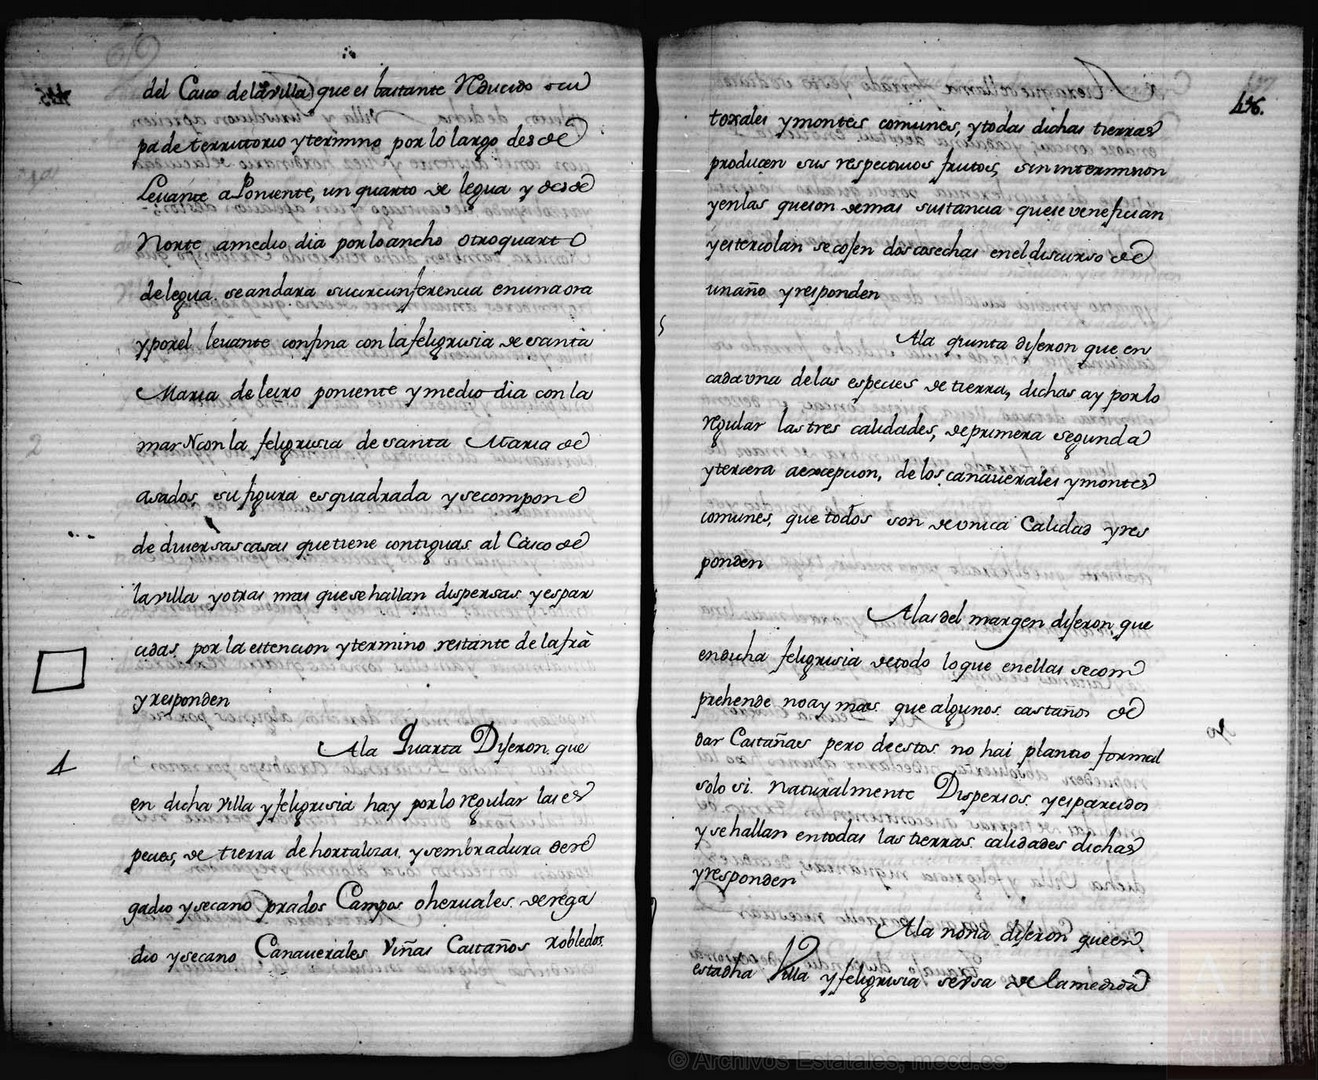 del Casco de la villa que es bastante Reducido ocu
pa de territorio y termino por lo largo desde
Levante a Poniente, un quarto de legua y desde
Norte amedio dia por lo ancho otro quarto
de legua se andara su circunferencia en una ora
y por el levante confina con la feligresia de santa
Maria de leiro poniente y medio dia con la
mar N con la feligresia de santa Maria de
asados su figura es quadrada y se compone
de diversas casas que tiene contiguas al Casco de
la villa y otras mas que se hallan dispersas y espar
cidas por la estencion y termino restante de la frâ
y responden
4
A la Quarta Dijeron que
en dicha villa y feligresia hay por lo regular las es
pecies, de tierra de hortalizas y sembradura de re
gadio y secano prados Campos o hervales de rega
dio y secano Canaverales Viñas Castaños Robledos
476.
toxales y montes comunes, y todas dichas tierras
producen sus respectivos frutos, sin intermision
y en las que son de mas sustancia que se venefician
y estercolan se cojen dos cosechas en el discurso de
un año y responden
A la quinta dijeron que en
cada vna de las especies de tierra, dichas ay por lo
regular las tres calidades, de primera segunda
y tercera a excepcion, de los canaverales y montes
comunes, que todos son de vnica Calidad y res
ponden
A las del margen dijeron que
en dicha feligresia de todo lo que en ellas se com
prehende no ay mas que algunos castaños de
dar Castañas pero de estos no hai plantio formal
solo si naturalmente Dispersos y esparcidos
y se hallan en todas las tierras calidades dichas
y responden
A la nona dijeron que en
esta dha Villa y feligresia se vsa de la medida
© Archivos Estatales, mecd.es